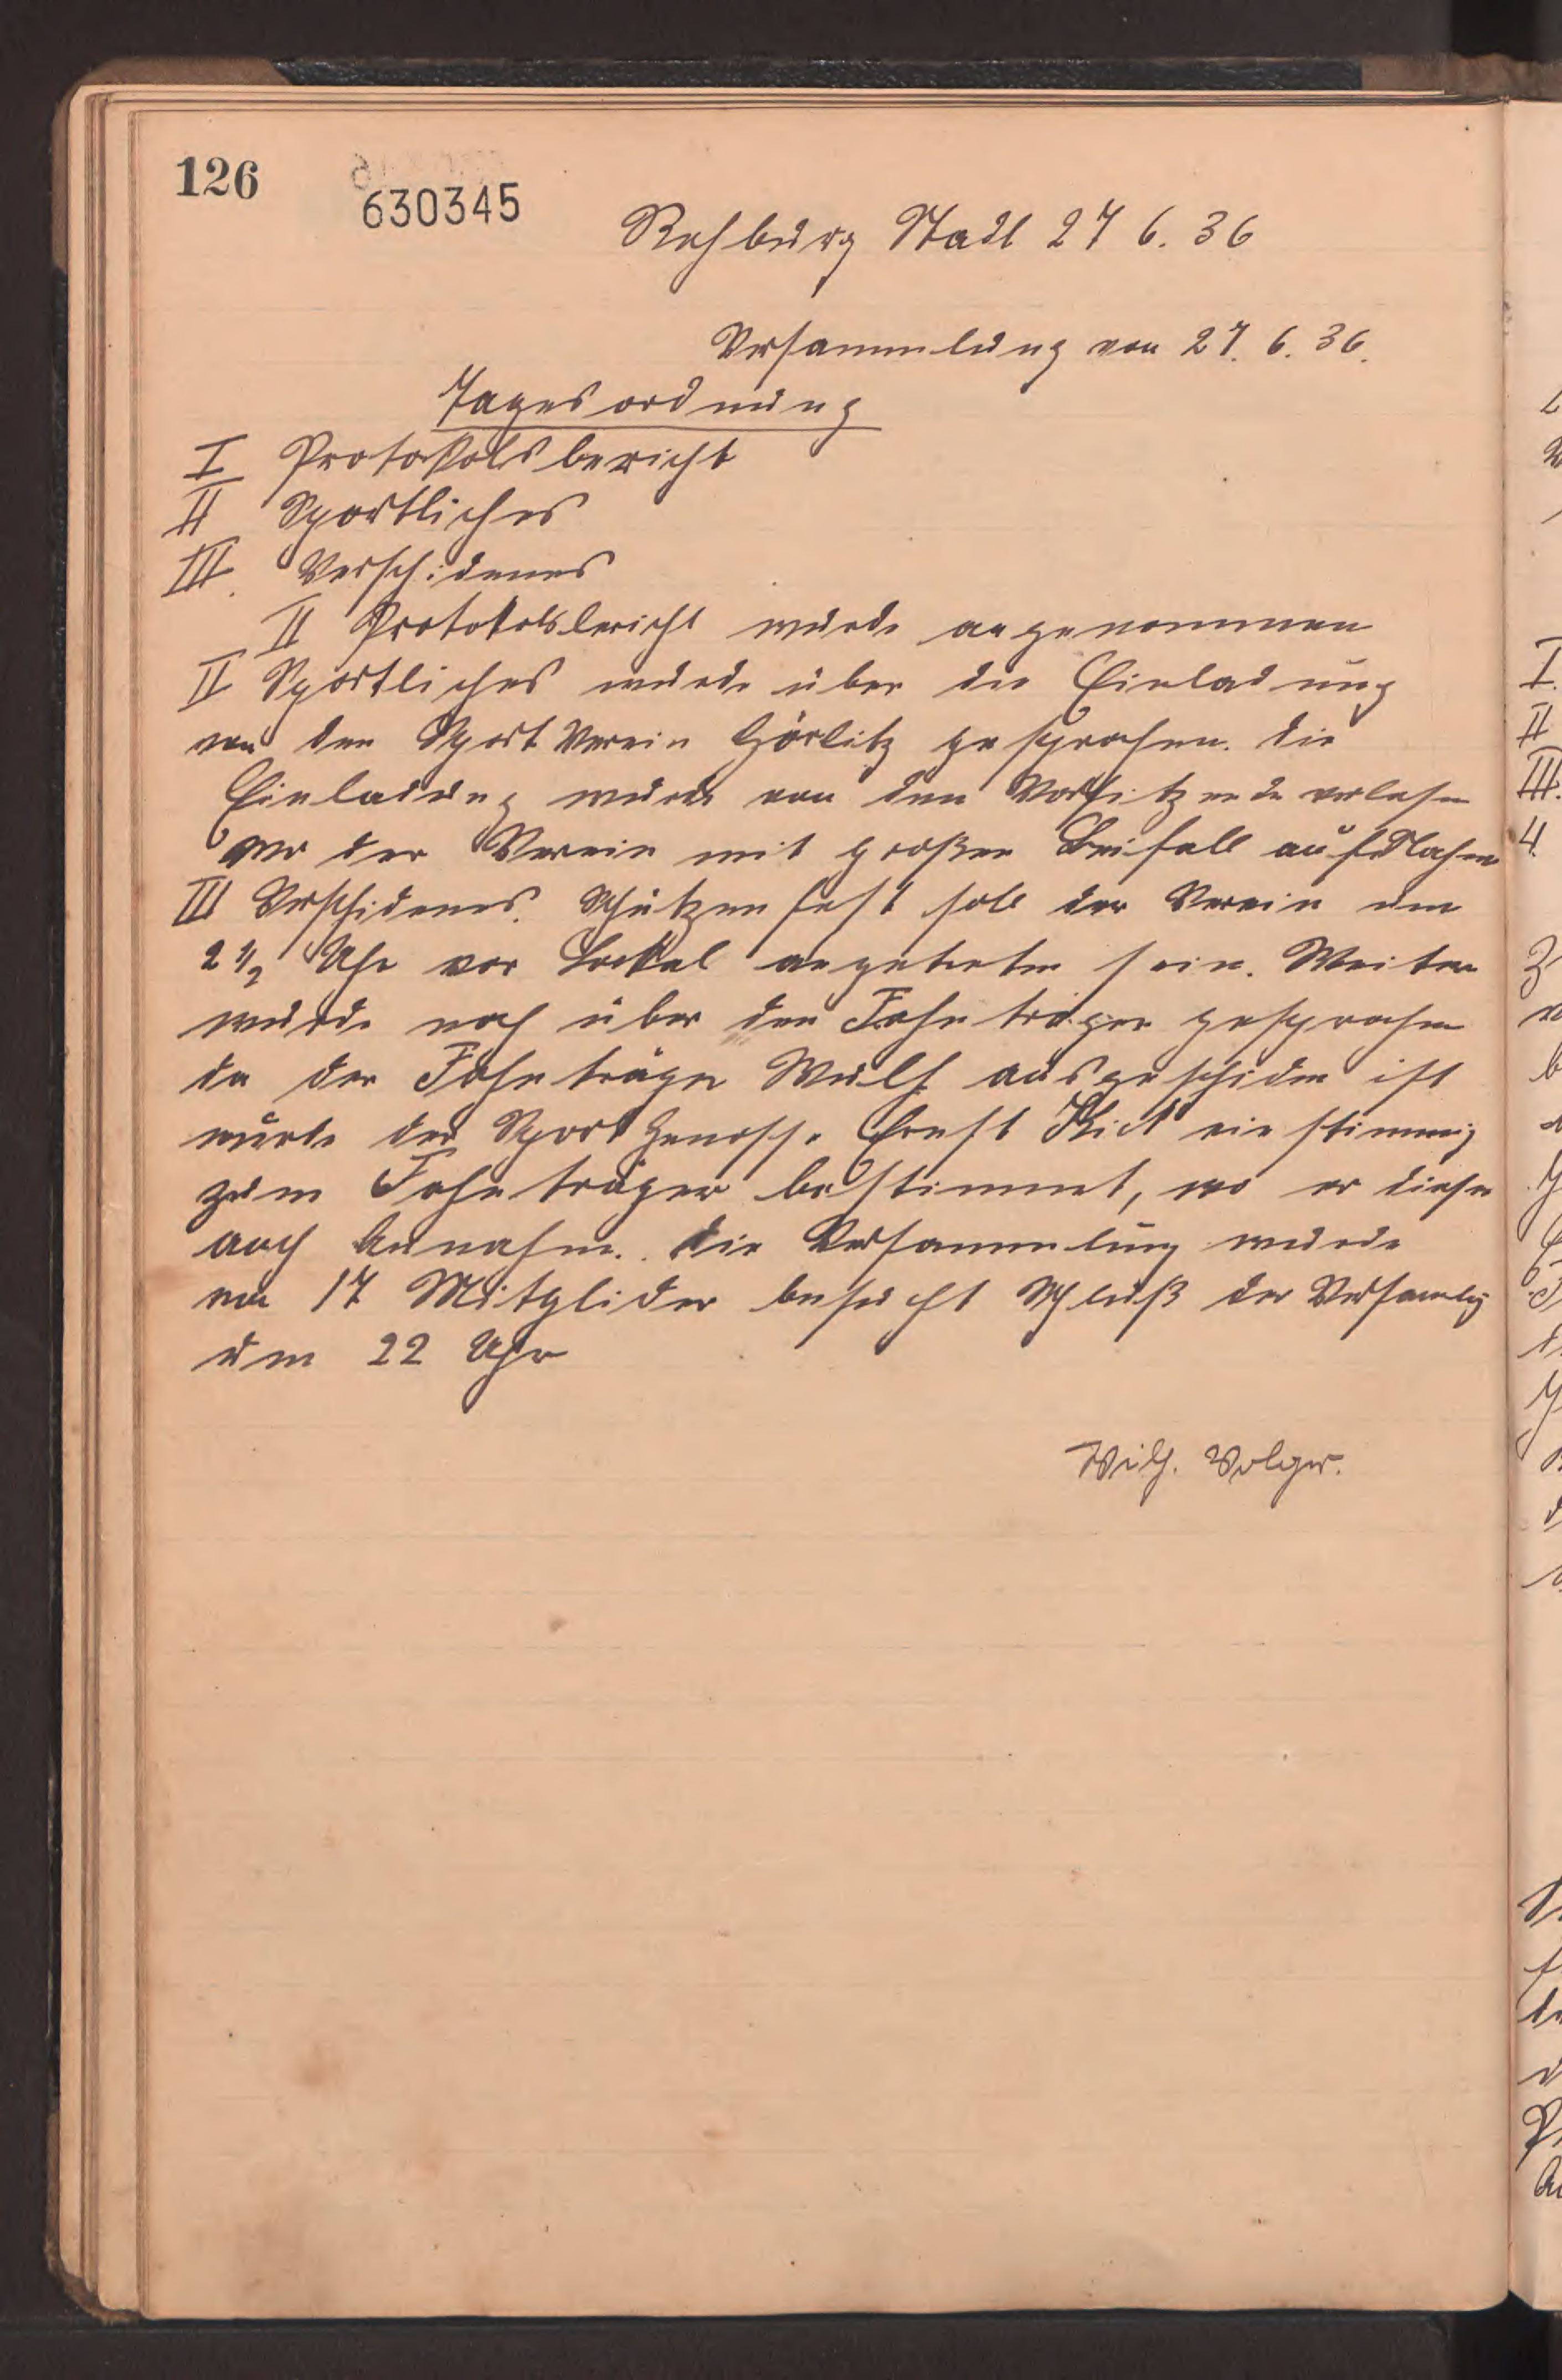 126
630345
Rehburg Stadt 27 6. 36
Versammlung von 27. 6. 36.
Tagesordnung
I Protokolsbericht
II Sportliches
III. Verschidenes
II Protokolsbericht wurde angenommen
II Sportliches wurde über die Einladung
von den Sport Verein Görlitz gesprochen. die
Einladung wurde von den Vorsitzende verlesen
wo der Verein mit großen Beifall aufNahm
III Verschidenes. Schützenfest soll der Verein um
2 1/2 Uhr vor Lockal angetreten sein. Weiter
wurde noch über den Fahnträger gesprochen
da der Fahnträger Wulf ausgeschiden ist
wurde der Sport Genosse Ernst einstimmig
zum Fahnträger bestimmt, wo er diesen
auch Annahm. die Versammlung wurde
von 17 Mitglider besucht Schluß der Versamlg
um 22 Uhr
Wilh. Volger.